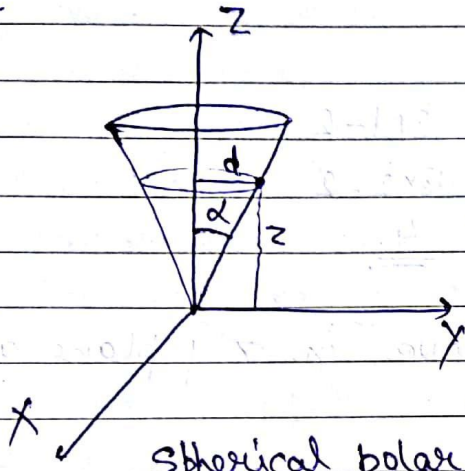 Z
d
α
z
Y
X
spherical polar